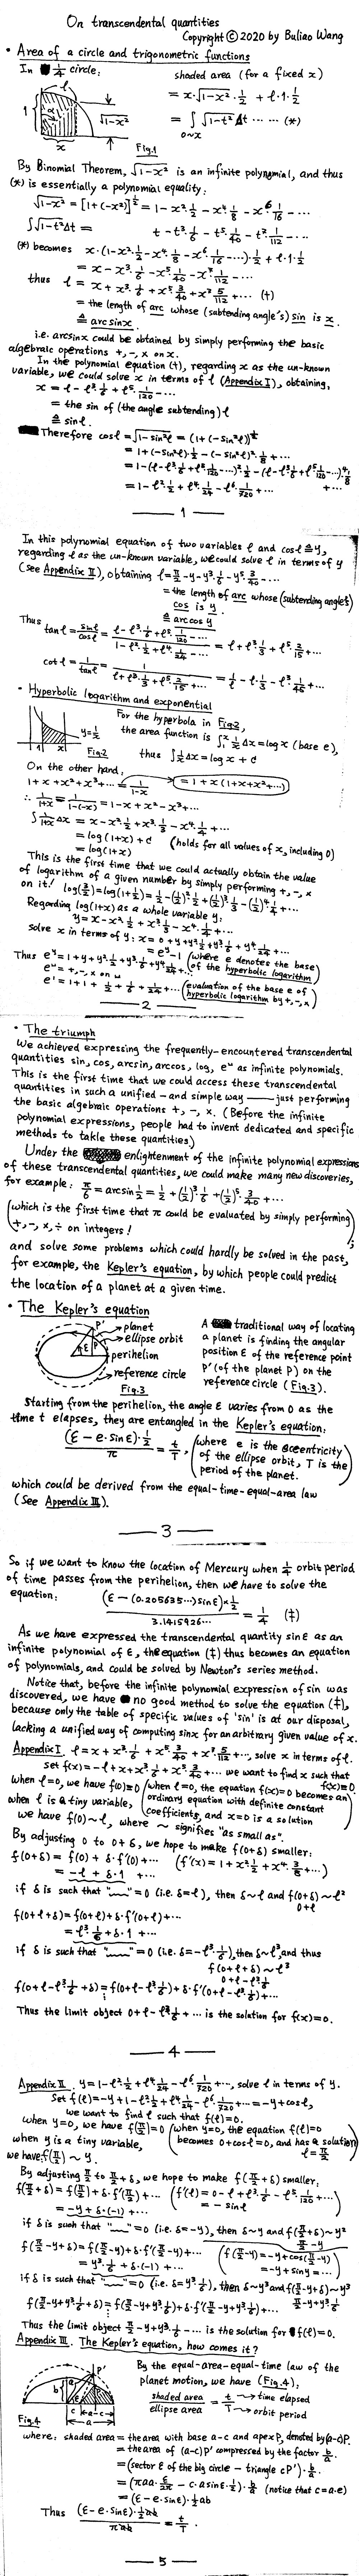 On transcendental quantities
Copyright © 2020 by Buliao Wang
• Area of a circle and trigonometric functions
In 1/4 circle:
shaded area (for a fixed x)
= x·√1-x²·1/2 + ℓ·1·1/2
= ∫ √1-t² Δt ······ (*)
0~x
1
ℓ
α
x
√1-x²
Fig.1
By Binomial Theorem, √1-x² is an infinite polynomial, and thus
(*) is essentially a polynomial equality:
√1-x² = [1+(-x²)]^1/2 = 1-x²·1/2 -x⁴·1/8 -x⁶·1/16 -···
∫√1-t²Δt = t-t³·1/6 -t⁵·1/40 -t⁷·1/112 -···
(*) becomes x·(1-x²·1/2 -x⁴·1/8 -x⁶·1/16 -····)·1/2 + ℓ·1·1/2
= x-x³·1/6 -x⁵·1/40 -x⁷·1/112 -···
thus ℓ = x + x³·1/6 + x⁵·3/40 + x⁷·5/112 +··· (†)
= the length of arc whose (subtending angle's) sin is x.
≜ arcsin x.
i.e. arcsinx could be obtained by simply performing the basic
algebraic operations +, -, × on x.
In the polynomial equation (†), regarding x as the un-known
variable, we could solve x in terms of ℓ (Appendix I), obtaining,
x = ℓ-ℓ³·1/6 +ℓ⁵·1/120 -···
= the sin of (the angle subtending) ℓ
≜ sinℓ.
Therefore cosℓ = √1-sin²ℓ = (1+(-sin²ℓ))^1/2
= 1+(-sin²ℓ)·1/2 -(-sin²ℓ)²·1/8 +···
= 1-(ℓ-ℓ³·1/6 +ℓ⁵·1/120 -···)²·1/2 -(ℓ-ℓ³·1/6 +ℓ⁵·1/120 -···)⁴·1/8
+···
= 1-ℓ²·1/2 +ℓ⁴·1/24 -ℓ⁶·1/720 +···
— 1 —
In this polynomial equation of two variables ℓ and cosℓ ≜ y,
regarding ℓ as the un-known variable, we could solve ℓ in terms of y
(see Appendix II), obtaining ℓ = π/2 -y-y³·1/6 -y⁵·3/40 -···
= the length of arc whose (subtending angle's)
cos is y
≜ arccos y
Thus tanℓ = sinℓ/cosℓ = (ℓ-ℓ³·1/6 +ℓ⁵·1/120 -···)/(1-ℓ²·1/2 +ℓ⁴·1/24 -···) = ℓ+ℓ³·1/3 +ℓ⁵·2/15 +···
cotℓ = 1/tanℓ = 1/(ℓ+ℓ³·1/3 +ℓ⁵·2/15 +···) = 1/ℓ -ℓ·1/3 -ℓ³·1/45 +···
• Hyperbolic logarithm and exponential
y=1/x
1 x
Fig.2
For the hyperbola in Fig.2,
the area function is ∫₁ˣ 1/x Δx = log x (base e),
thus ∫1/x Δx = log x + c
On the other hand,
1+x+x²+x³+··· = 1/1-x
= 1+x(1+x+x²+···)
∴ 1/1+x = 1/1-(-x) = 1-x+x²-x³+···
∫1/1+x Δx = x-x²·1/2 +x³·1/3 -x⁴·1/4 +···
= log(1+x)+c (holds for all values of x, including 0)
= log(1+x)
This is the first time that we could actually obtain the value
of logarithm of a given number by simply performing +, -, ×
on it! log(3/2)=log(1+1/2)=1/2 -(1/2)²·1/2 +(1/2)³·1/3 -(1/2)⁴·1/4 +···
Regarding log(1+x) as a whole variable y:
y = x-x²·1/2 +x³·1/3 -x⁴·1/4 +···
solve x in terms of y: x = 0+y+y²·1/2 +y³·1/6 +y⁴·1/24 +···
= e^y-1 (where e denotes the base of the hyperbolic logarithm)
Thus e^y = 1+y+y²·1/2 +y³·1/6 +y⁴·1/24 +···
e^u = +, -, × on u
e¹ = 1+1+1/2 +1/6 +1/24 +··· (evaluation of the base e of hyperbolic logarithm by +, -, ×)
— 2 —
• The triumph
We achieved expressing the frequently-encountered transcendental
quantities sin, cos, arcsin, arccos, log, e^u as infinite polynomials.
This is the first time that we could access these transcendental
quantities in such a unified - and simple way — just performing
the basic algebraic operations +, -, ×. (Before the infinite
polynomial expressions, people had to invent dedicated and specific
methods to takle these quantities)
Under the enlightenment of the infinite polynomial expressions
of these transcendental quantities, we could make many new discoveries,
for example: π/6 = arcsin 1/2 = 1/2 +(1/2)³·1/6 +(1/2)⁵·3/40 +···
(which is the first time that π could be evaluated by simply performing
+, -, ×, ÷ on integers!);
and solve some problems which could hardly be solved in the past,
for example, the Kepler's equation, by which people could predict
the location of a planet at a given time.
• The Kepler's equation
P'
planet
ellipse orbit
perihelion
reference circle
ε P
Fig.3
A traditional way of locating
a planet is finding the angular
position ε of the reference point
P' (of the planet P) on the
reference circle (Fig.3).
Starting from the perihelion, the angle ε varies from 0 as the
time t elapses, they are entangled in the Kepler's equation:
(ε-e·sinε)·1/2 / π = t/T, (where e is the eccentricity of the ellipse orbit, T is the period of the planet.)
which could be derived from the equal-time-equal-area law
(See Appendix III).
— 3 —
So if we want to know the location of Mercury when 1/4 orbit period
of time passes from the perihelion, then we have to solve the
equation: (ε-(0.205635···)sinε)×1/2 / 3.1415926··· = 1/4 (‡)
As we have expressed the transcendental quantity sinε as an
infinite polynomial of ε, the equation (‡) thus becomes an equation
of polynomials, and could be solved by Newton's series method.
Notice that, before the infinite polynomial expression of sin was
discovered, we have no good method to solve the equation (‡),
because only the table of specific values of 'sin' is at our disposal,
lacking a unified way of computing sinx for an arbitrary given value of x.
Appendix I. ℓ = x+x³·1/6 +x⁵·3/40 +x⁷·5/112 +···, solve x in terms of ℓ.
Set f(x) = -ℓ+x+x³·1/6 +x⁵·3/40 +··· we want to find x such that
f(x)=0.
When ℓ=0, we have f(0)=0 (when ℓ=0, the equation f(x)=0 becomes an ordinary equation with definite constant coefficients, and x=0 is a solution)
when ℓ is a tiny variable,
we have f(0)~ℓ, where ~ signifies "as small as".
By adjusting 0 to 0+δ, we hope to make f(0+δ) smaller:
f(0+δ) = f(0)+δ·f'(0)+··· (f'(x)=1+x²·1/2 +x⁴·3/8 +···)
= -ℓ+δ·1 +···
if δ is such that "﹏"=0 (i.e. δ=ℓ), then δ~ℓ and f(0+δ)~ℓ³
0+ℓ
f(0+ℓ+δ) = f(0+ℓ)+δ·f'(0+ℓ)+···
= ℓ³·1/6 +δ·1 +···
if δ is such that "﹏"=0 (i.e. δ=-ℓ³·1/6), then δ~ℓ³, and thus
f(0+ℓ+δ)~ℓ⁵
0+ℓ-ℓ³·1/6
f(0+ℓ-ℓ³·1/6 +δ) = f(0+ℓ-ℓ³·1/6)+δ·f'(0+ℓ-ℓ³·1/6)+···
⋮
Thus the limit object 0+ℓ-ℓ³·1/6 +··· is the solution for f(x)=0.
— 4 —
Appendix II. y=1-ℓ²·1/2 +ℓ⁴·1/24 -ℓ⁶·1/720 +···, solve ℓ in terms of y.
Set f(ℓ) = -y+1-ℓ²·1/2 +ℓ⁴·1/24 -ℓ⁶·1/720 +··· = -y+cosℓ,
we want to find ℓ such that f(ℓ)=0.
when y=0, we have f(π/2)=0 (when y=0, the equation f(ℓ)=0 becomes 0+cosℓ=0, and has a solution ℓ=π/2)
when y is a tiny variable,
we have f(π/2)~y.
By adjusting π/2 to π/2+δ, we hope to make f(π/2+δ) smaller:
f(π/2+δ) = f(π/2)+δ·f'(π/2)+··· (f'(ℓ)=0-ℓ+ℓ³·1/6 -ℓ⁵·1/120 +··· = -sinℓ)
= -y+δ·(-1)+···
if δ is such that "﹏"=0 (i.e. δ=-y), then δ~y and f(π/2+δ)~y³
π/2-y
f(π/2-y+δ) = f(π/2-y)+δ·f'(π/2-y)+··· (f(π/2-y)=-y+cos(π/2-y) = -y+siny=···)
= -y³·1/6 +δ·(-1)+···
if δ is such that "﹏"=0 (i.e. δ=-y³·1/6), then δ~y³ and f(π/2-y+δ)~y⁵
π/2-y-y³·1/6
f(π/2-y-y³·1/6+δ) = f(π/2-y-y³·1/6)+δ·f'(π/2-y-y³·1/6)+···
⋮
Thus the limit object π/2-y-y³·1/6 -··· is the solution for f(ℓ)=0.
Appendix III. The Kepler's equation, how comes it?
P'
b a P
ε
c a-c
a
Fig.4
By the equal-area-equal-time law of the
planet motion, we have (Fig.4):
shaded area / ellipse area = t/T → time elapsed
→ orbit period
where: shaded area = the area with base a-c and apex P, denoted by (a-c)P.
= the area of (a-c)P' compressed by the factor b/a.
= (sector ε of the big circle - triangle cP')·b/a.
= (πaa·ε/2π - c·a sinε·1/2)·b/a (notice that c=a·e)
= (ε-e·sinε)·1/2 ab
Thus (ε-e·sinε)·1/2 ab / πab = t/T.
— 5 —